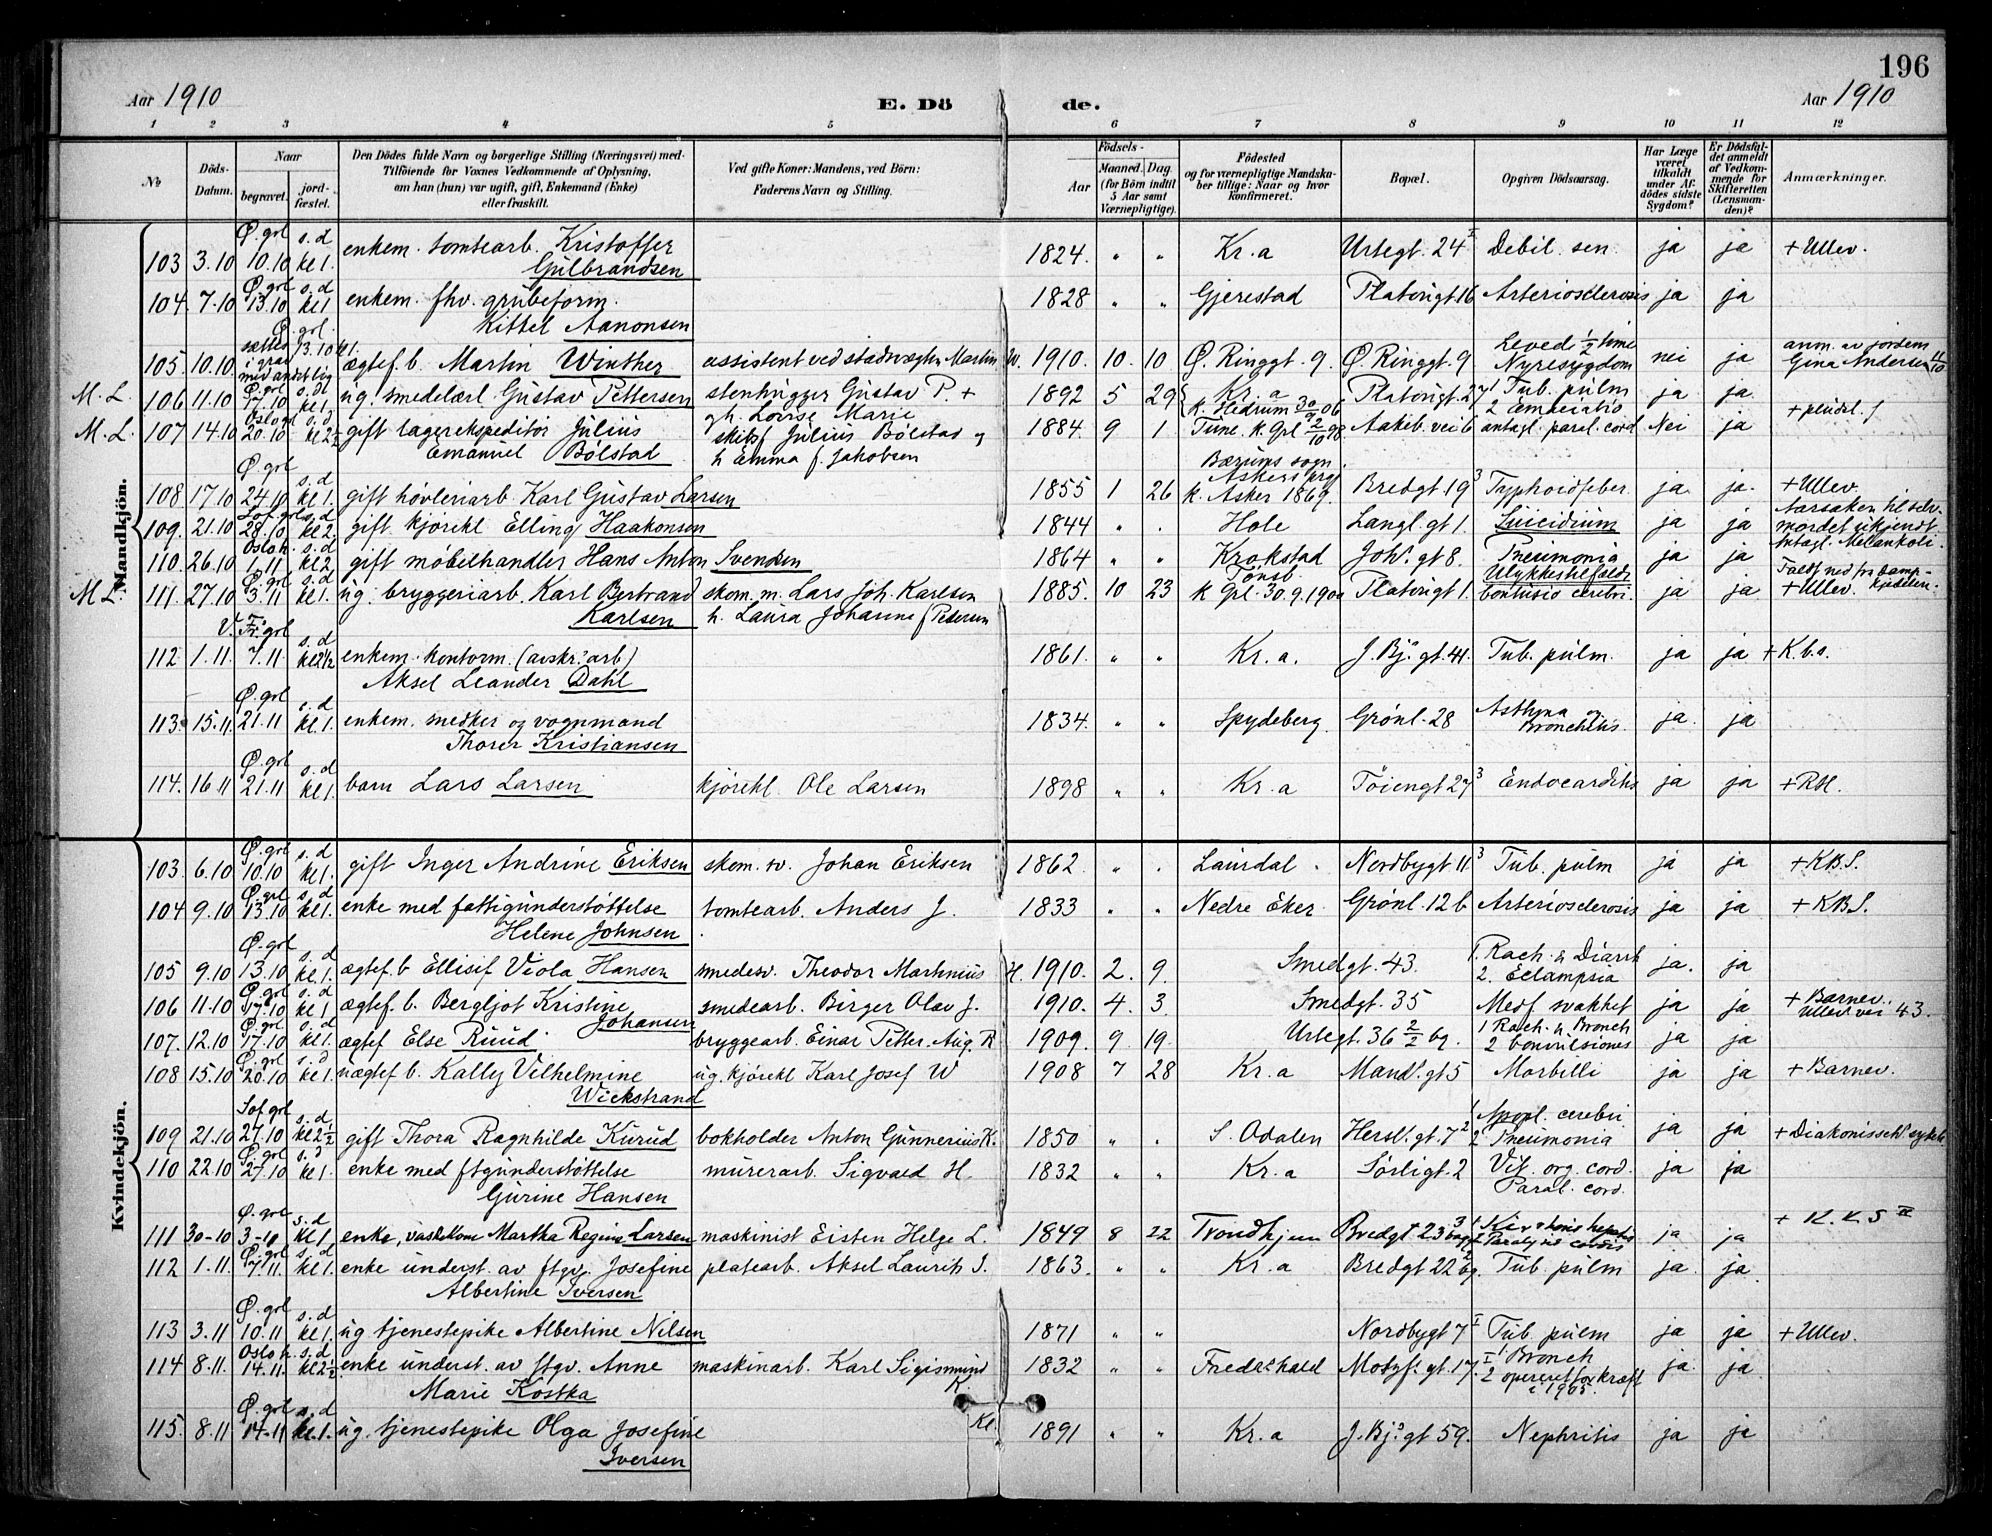 196
Aar 1910 E. Dö de. Aar 1910
1 2 3 4 5 6 7 8 9 10 11 12
№ Döds-Datum. Naar begravet. jordfæstet. Den Dödes fulde Navn og borgerlige Stilling (Næringsvei) med Tilföiende for Voxnes Vedkommende af Oplysning, om han (hun) var ugift, gift, Enkemand (Enke) eller fraskilt. Ved gifte Koner: Mandens, ved Börn: Faderens Navn og Stilling. Födsels- Aar Maaned. Dag. (for Börn indtil 5 Aar samt Værnepligtige). Födested og for værnepligtige Mandskaber tillige: Naar og hvor konfirmeret. Bopæl. Opgiven Dödsaarsag. Har Læge været tilkaldt under Afdödes sidste Sygdom? Er Dödsfaldet anmeldt af Vedkommende for Skifteretten (Lensmanden)? Anmærkninger.
Mandkjön.
Ø. grl s. d
103 3.10 10.10 kl 1. enkem. tomtearb. Kristoffer Gulbrandsen 1824 " " Kr.a Urtegt. 24 I Debil. sen. ja ja + Ullev.
Ø grl s. d
104. 7.10 13.10 kl 1 enkem. fhv. grubeform. Kittel Aanonsen 1828 " " Gjerestad Platougt. 16 Arteriosclerosis ja ja
Ø. grl.
105. 10.10. sættes i grav med andet lig 13.10 kl 1. ægtef. b. Martin Winther assistent ved stadsvægter Martin W. 1910. 10. 10 Ø. Ringgt. 9. Ø. Ringgt. 9 Leved ½ time Nyresygdom nei ja anm. av jordem Gina Andersen
M. L. Ø grl s. d
106 11.10 17.10 kl 1. ug. smedelærl. Gustav Pettersen stenhugger Gustav P. + gh. Lovise Marie 1892 5 29 Kr. a k. Hedrum 30/9 06 Platougt. 27 1 Tub. pulm 2 emaciatio ja ja
M. L. Oslo grl s. d
107 14.10 20.10 kl 2½ gift lagerekspeditör Julius Emanuel Bölstad skibsf Julius Bölstad og h Emma f. Jakobsen 1884. 9 1 Tune. k. Grl 2/10 98 Aakeb. vei 6 antagl. paral. cord Nei ja
Ø grl s. d
108 17.10 24.10 kl 1. gift høvleriarb. Karl Gustav Larsen 1855 1 26 Bærums sogn Askers prgj k. Asker 1869. Bredgt 19 3 Typhoidfeber ja ja. + Ullev.
Sof. grl s. d
109. 21.10 28.10 kl 2. gift kjørekl Elling Haakonsen 1844 " . Hole Langl. gt 1. Suicidium ja ja Aarsaken til selvmordet ukjendt Antagl. Melankoli.
Oslo h. s. d
110. 26.10 1.11 kl 2 gift møbelhandler Hans Anton Svendsen 1864 " " Krokstad Joh.s gt 8. Pneumonia ja ja
M L. Ø. grl s. d
111. 27.10 3.11 kl 1. ug. bryggeriarb. Karl Bertrand Karlsen skom. m. Lars Joh. Karlsen h. Laura Johanne f Pedersen 1885. 10 23 Tønsb. k Grl. 30.9.1900 Platougt 1. Ulykkestilfælde Contusio cerebri. ja ja. Faldt ned fra + Ullev.
V. Fr. grl s. d
112 1.11. 7.11. kl 2½ enkem. kontorm. (avskr. arb) Aksel Leander Dahl 1861. " " Kr. a. J. Bj. gt. 41. Tub. pulm. ja ja + K. b. s.
Ø. grl s. d
113. 15.11. 21.11 kl 1. enkem. snedker og vognmand Thorer Kristiansen 1834. " " Spydeberg Grönl. 28 Asthma og Bronchitis. ja. ja
Ø. grl s. d
114. 16 11 21.11 kl 1. barn Lars Larsen kjørekl. Ole Larsen 1898 " " Kr. a Töiengt 27 3 Endocarditis ja ja + RH.
Kvindekjön.
Ø. grl s. d
103. 6.10 10.10 kl 1. gift Inger Andrine Eriksen skom. sv. Johan Eriksen 1862 " . Laurdal . Nordbygt 11 3 Tub. pulm ja ja + KBS.
Ø. grl s. d
104 9.10 13.10 kl 1. enke med fattigunderstøttelse Helene Johnsen tomtearb. Anders J. 1833 " " Nedre Eker Grönl. 12 b Arteriosclerosis ja ja + KBS.
Ø. grl s. d
105 9.10 13.10 kl 1. ægtef. b Ellisif Viola Hansen smedesv. Theodor Martinius H. 1910. 2. 9. Smedgt. 43. 1. Rach. & Diarrh 2. Eclampsia ja. ja
Ø. grl s. d
106 11.10 17.10 kl 1 ægtef. b. Bergljot Kristine Johansen smedearb. Birger Olav J. 1910. 4. 3 Smedgt. 35 Medf svakhet ja ja + Barnev. Ullev. vei 43.
Ø. grl s. d
107. 12.10 17.10 kl 1. ægtef Else Ruud bryggearb. Einar Petter. Aug. R 1909. 9 19. Urtegt. 36 2/2 bg. 1 Rach. & Bronch 2 Convulsiones ja ja
Ø grl s. d
108 15.10 20.10 kl 1. uægtef b. Kally Vilhelmine Wickstrand ug. kjørekl Karl Josef W 1908 7 28 Kr. a Mand. gt 5 Morbilli ja ja + Barnev.
Sof grl s. d
109 21.10 27.10 kl 2½ gift Thora Ragnhilde Kurud bokholder Anton Gunnerius K. 1850 " " S. Odalen Hersl. gt. 7 2 1 Apopl. cerebri 2 Pneumonia ja ja + Diakonisseh. sykeh
Ø. grl s. d
110 22.10 27.10 kl 1. enke med ftgunderstøttelse Gurine Hansen murerarb. Sigvald H. 1832 " " Kr. a Sörligt. 2 Vit. org. cord. Paral. cord. ja ja
Ø. grl s. d
111 30-10 3-10 kl 1 enke, vaskekone Martha Regine Larsen maskinist Eisten Helge L. 1849 8 22 Trondhjem Bredgt 23 3 1 Cirrhosis hepatis 2 Paralysis cordis ja ja + K. K. S III
Ø. grl s. d
112 1.11. 7.11. kl 1. enke underst. av ftgv. Josefine Albertine Iversen platearb. Aksel Laurits I. 1863. " " Kr. a Bredgt 22 2 bg. Tub. pulm ja. ja.
Ø. grl s. d
113 3.11 10.11 kl 1. ug tjenestepike Albertine Nilsen 1871 " " Nordbygt 7 I Tub. pulm ja ja + Ullev.
Oslo h. s. d
114 8.11. 14.11. kl 2½ enke underst. av ftgv. Anne Marie Kostka maskinarb. Karl Sigismund K. 1832 " " Fredr.hald Motzf. gt. 17. I 1 Bronch 2 operert for kræft i 1905. ja. ja.
Ø. grl s. d
115. 8.11 14.11 kl. 1. ug. tjenestepike Olga Josefine Iversen Kl. 1891 " " Kr. a J. Bj. gt 59. Nephritis ja ja